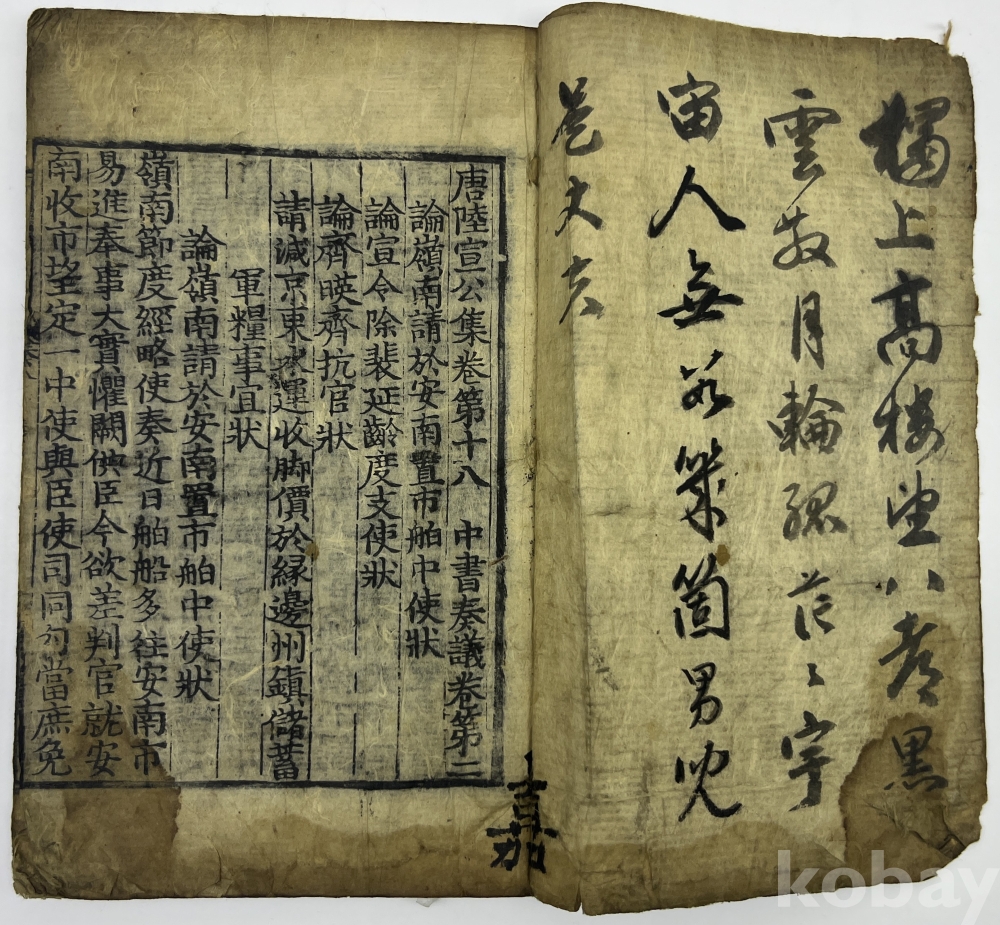 獨上高樓望八都黑
雲散月輪孤茫〻宇
宙人無幾箇男兒
是丈夫
唐陸宣公集卷第十八 中書奏議卷第二
論嶺南請於安南置市舶中使狀
論宣令除裴延齡度支使狀
論齊暎齊抗官狀
請減京東水運收脚價於緣邊州鎮儲蓄
軍糧事宜狀
論嶺南請於安南置市舶中使狀
嶺南節度經略使奏近日舶船多往安南市
易進奉事大實懼闕供臣今欲差判官就安
南收市望定一中使與臣使司同勾當庶免
嘉
kobay